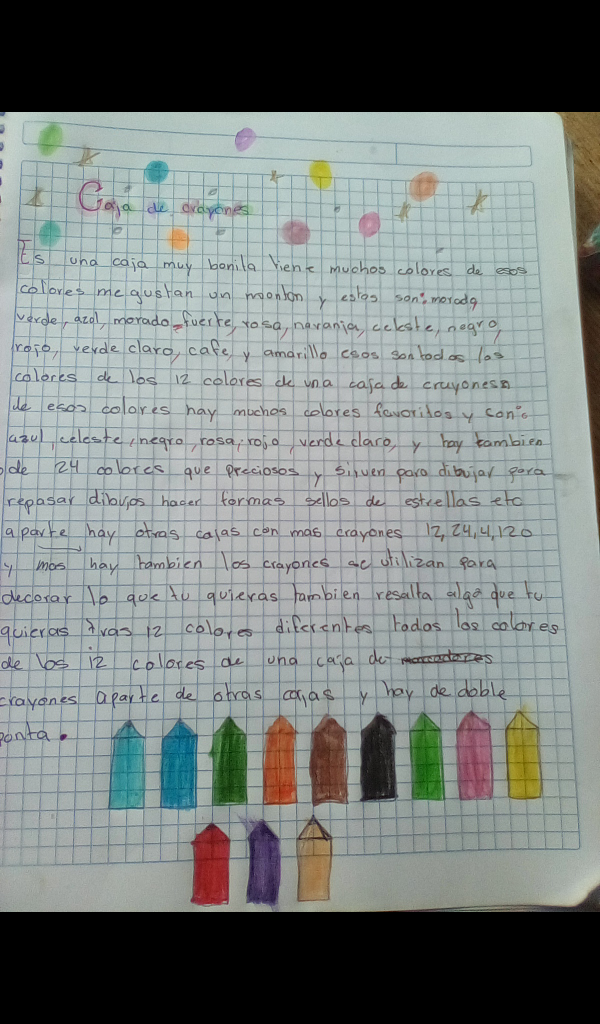 Caja de crayones
Es una caja muy bonita tiene muchos colores de esos
colores me gustan un moonton y estos son: morado
verde, azol, morado-fuerte, rosa, naranja, celeste, negro,
rojo, verde claro, cafe, y amarillo esos son todos los
colores de los 12 colores de una caja de crayones
de esos colores hay muchos colores favoritos y son:
azul, celeste, negro, rosa, rojo, verde claro, y hay tambien
de 24 colores que preciosos y sirven para dibujar para
repasar dibujos hacer formas sellos de estrellas etc
aparte hay otras cajas con mas crayones 12, 24, 4, 120
y mas hay tambien los crayones se utilizan para
decorar lo que tu quieras tambien resalta algo que tu
quieras tras 12 colores diferentes todos los colores
de los 12 colores de una caja de
crayones aparte de otras cajas y hay de doble
ponta.